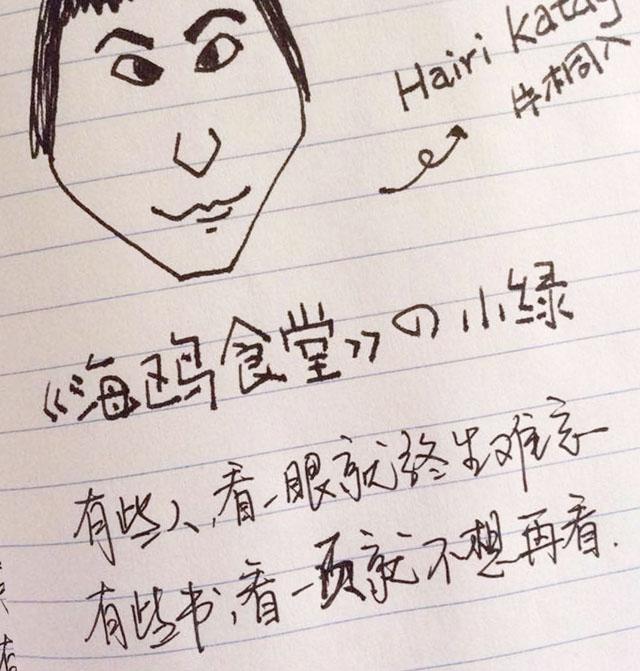 Hairi Katag
片桐入
《海鸥食堂》の小绿
有些人,看一眼就终生难忘
有些书,看一页就不想再看.